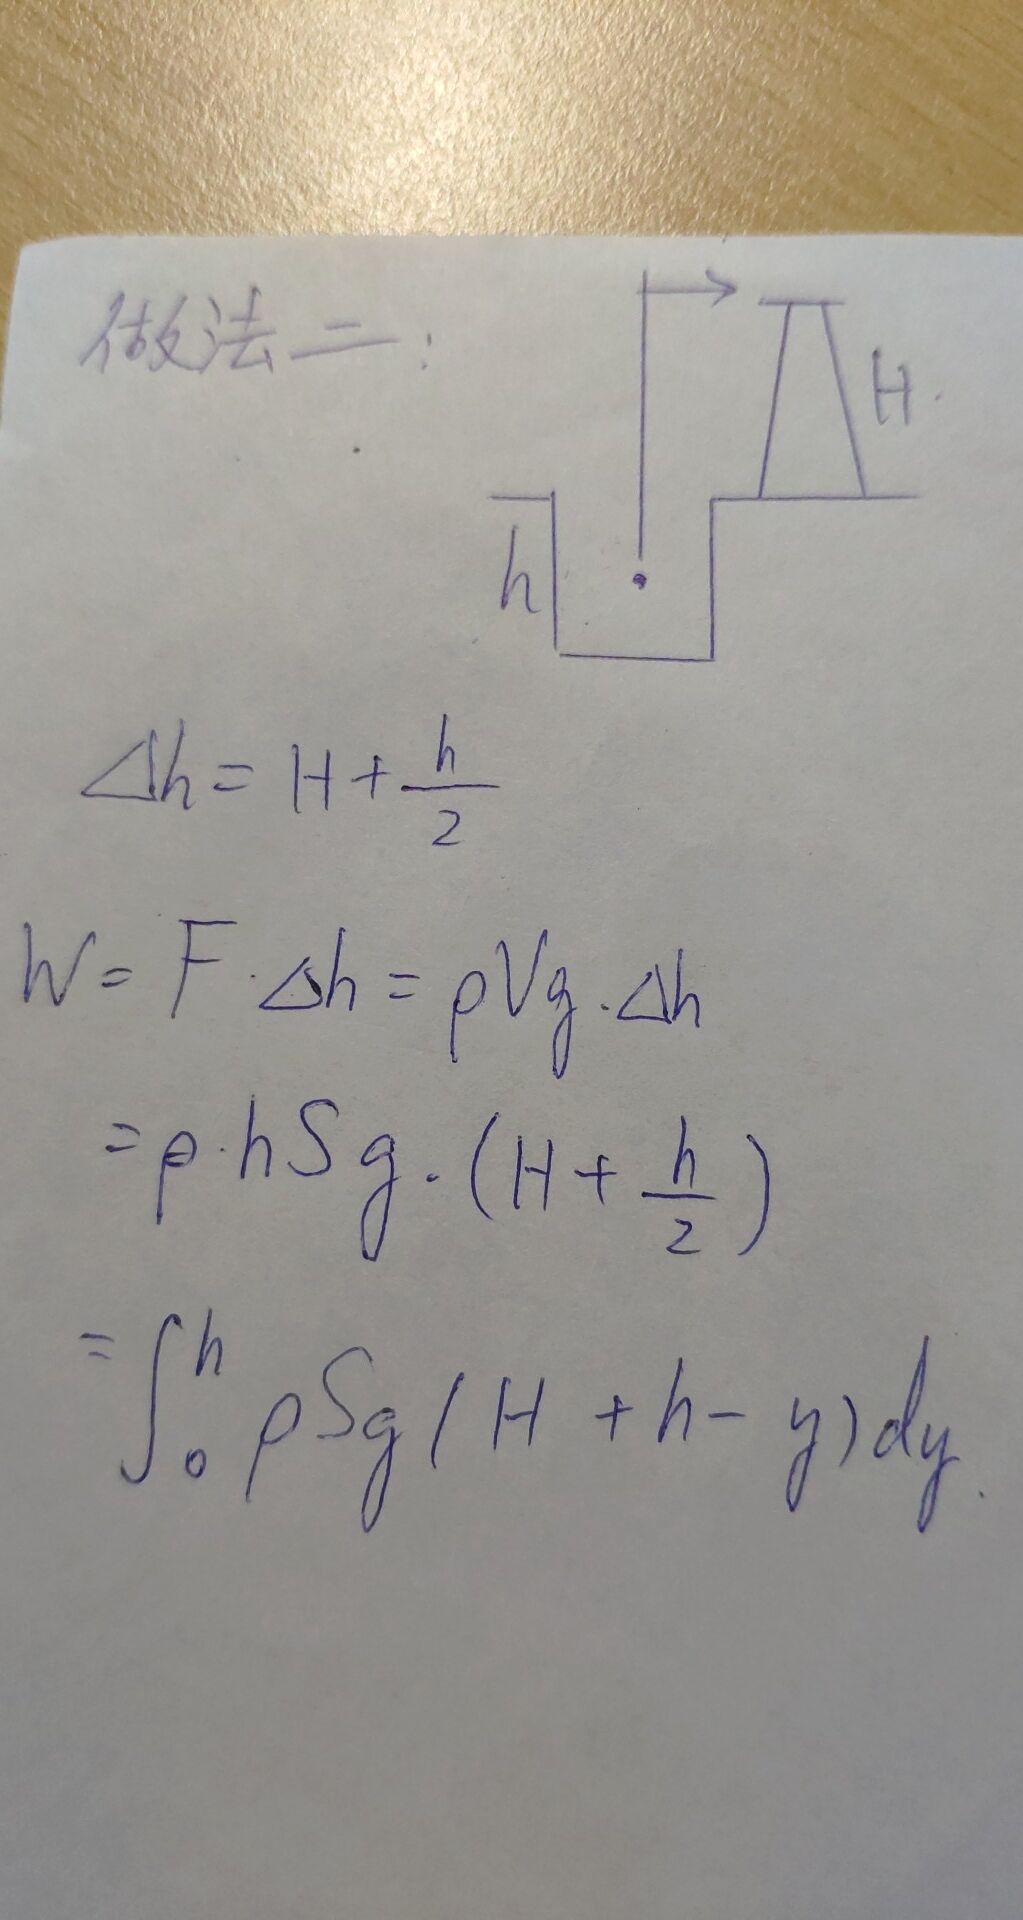 做法二:
H
h
Δh = H + h/2
W = F·Δh = ρVg·Δh
= ρ·hSg·(H + h/2)
= ∫₀ʰ ρSg(H + h - y)dy.